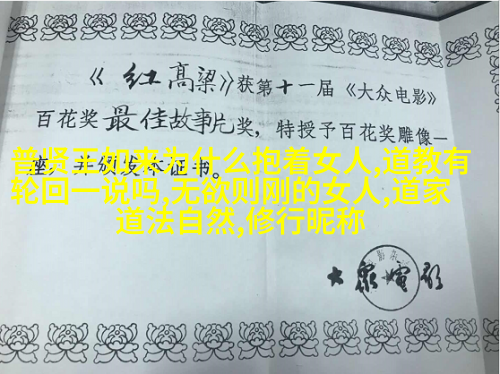 《红高粱》获第十一届《大众电影》
百花奖最佳故事片奖，特授予百花奖雕像一
座，并颁发本证书。
普贤王如来为什么抱着女人,道教有
轮回一说吗,无欲则刚的女人,道家
道法自然,修行昵称
大眾電影